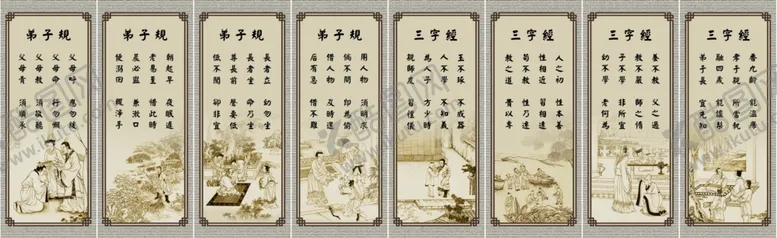 弟子規
父母呼 應勿緩
父母命 行勿懶
父母教 須敬聽
父母責 須順承
弟子規
朝起早 夜眠遲
老易至 惜此時
晨必盥 兼漱口
便溺回 輒淨手
弟子規
長者立 幼勿坐
長者坐 命乃坐
尊長前 聲要低
低不聞 卻非宜
弟子規
用人物 須明求
倘不問 即為偷
借人物 及時還
後有急 借不難
三字經
玉不琢 不成器
人不學 不知義
為人子 方少時
親師友 習禮儀
三字經
人之初 性本善
性相近 習相遠
苟不教 性乃遷
教之道 貴以專
三字經
養不教 父之過
教不嚴 師之惰
子不學 非所宜
幼不學 老何為
三字經
香九齡 能溫席
孝于親 所當執
融四歲 能讓梨
弟于長 宜先知